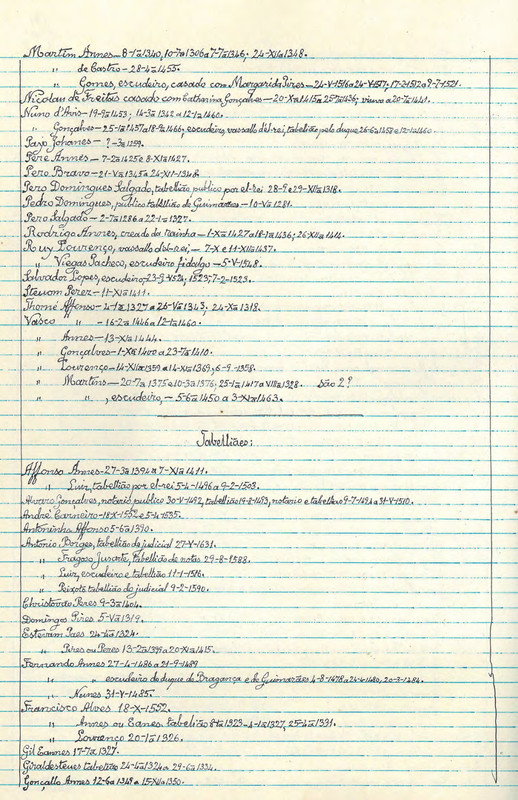 Martim Annes - 8-1ª1340, 10-7ª1306 a 7-7ª1346; 24-XIIª1348.
" de Castro - 28-4ª1455.
" Gomes, escudeiro, casado com Margarida Pires - 24-V-1516 a 24-V-1517; 17-2-1512 a 7-7-1521.
Nicolau de Freitas casado com Catharina Gonçalves - 20-Xª1415 a 25-7ª1436; viuvo a 20-7ª1441.
Nuno d'Avis - 19-9ª1453; 14-3ª a 12-1ª1460.
" Gonçalves - 25-1ª1457 a 18-7ª1466; escudeiro, vassallo del-rei, tabelião pelo duque 26-6ª1458 e 12-1ª1460
Payo Johanes - ? -3ª1259.
Pere Annes - 7-2ª1425 e 8-XIª1427.
Pero Bravo - 21-Vª1345 a 24-XII-1348
Pero Domingues Salgado, tabellião publico por el-rei 28-9 e 29-XIIª1318.
Pedro Domingues, publico tabellião de Guimarães - 10-Vª1281.
Pero Salgado - 2-7ª1286 a 22-1ª1327.
Rodrigo Annes, creado da rainha - 1-Xª1427 a 18-7ª1436; 26-XIIª1414.
Ruy Lourenço, vassallo del-rei, - 7-X e 11-XIIª1437.
" Viegas Pacheco, escudeiro fidalgo - 5-V-1548.
Salvador Lopes, escudeiro, - 23-9-1524, 1523; 7-2-1523.
Stevom Perez - 11-XIª1411.
Thomé Affonso - 4-1ª1327 a 26-Vª1343; 24-Xª1318.
Vasco " - 16-2ª1446 a 12-1ª1460.
" Annes - 13-XIª1444.
" Gonçalves - 1-Xª1400 a 23-7ª1410.
" Lourenço - 14-XIIª1359 a 14-XIIª1369; 6-9-1358.
" Martins - 20-7ª1375 e 10-3ª1376; 25-1ª1417 a VIIIª1328. São 2?
" ", escudeiro, - 5-6ª1450 a 3-XIª1463.
Tabelliães:
Affonso Annes - 27-3ª1394 a 7-XIª1411.
" Luiz, tabellião por el-rei 5-4-1496 a 9-2-1503.
Alvaro Gonçalves, notario publico 30-V-1492, tabellião 19-8-1493, notario e tabellião 9-7-1494 a 31-V-1510.
André Carneiro - 18-X-1532 e 5-4-1535.
Antoninho Affonso 5-6ª1390.
Antonio Borges, tabellião de judicial 27-V-1631.
" Fragoso Jusarte, tabellião de notas 29-8-1588.
" Luiz, escudeiro e tabellião 11-1-1516.
" Peixoto tabellião do judicial 9-2-1590.
Christovão Peres 9-3ª1404.
Domingos Pires 5-Vª1319.
Estevam Paes 24-4ª1324.
" Pires ou Peres 13-2ª1399 a 20-XIª1415.
Fernando Annes 27-4-1486 a 21-9-1489
" escudeiro do duque de Bragança e de Guimarães 4-8-1478 a 24-4-1480, 20-3-1484.
" Nunes 31-V-1485.
Francisco Alves 18-X-1552.
" Annes ou Eanes, tabelião 8-1ª1323 - 4-1ª1327, 25-4ª1331.
" Lourenço 20-1ª1326.
Gil Eannes 17-7ª1327.
Giraldesteves tabelião 24-4ª1324 a 29-6ª1334.
Gonçallo Annes 12-6ª1348 a 15-XIIª1350.